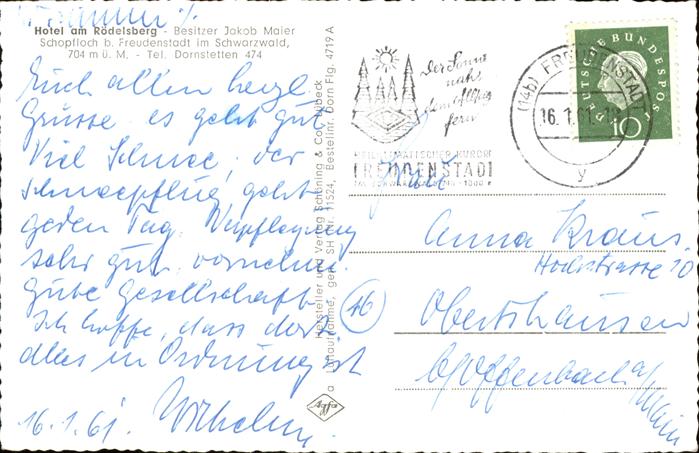 Hotel am Rödelsberg - Besitzer Jakob Maier
Schopfloch b. Freudenstadt im Schwarzwald,
704 m ü. M. - Tel. Dornstetten 474
Euch allen herzl.
Grüsse. es geht gut
Viel Schnee, der
Schneepflug geht
jeden Tag. Verpflegung
sehr gut, vornehme
gute Gesellschaft.
Ich hoffe, dass dort
alles in Ordnung ist
16.1.61. Wilhelm.
Hersteller und Verlag Schöning & Co., Lübeck
SH nr. 11524, Bestellnr. Dorn Flg. 4719 A
Agfa
Der Sonne
nah,
dem Alltag
fern
FREUDENSTADT
(14b) FREUDENSTADT
16.1.61
y
DEUTSCHE BUNDESPOST
10
Frau
Anna Kraus.
Hochstrasse 10
46
Obertshausen
b/Offenbach a/
Main